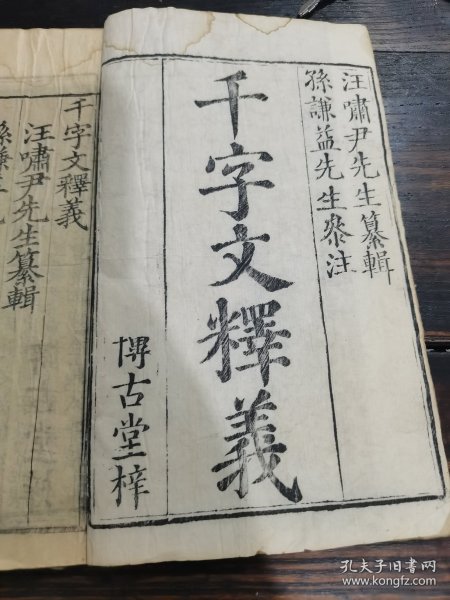 汪嘯尹先生纂輯
孫謙益先生叅注
千字文釋義
博古堂梓
千字文釋義
汪嘯尹先生纂輯
孫謙益先
孔夫子旧书网
www.kongfz.com